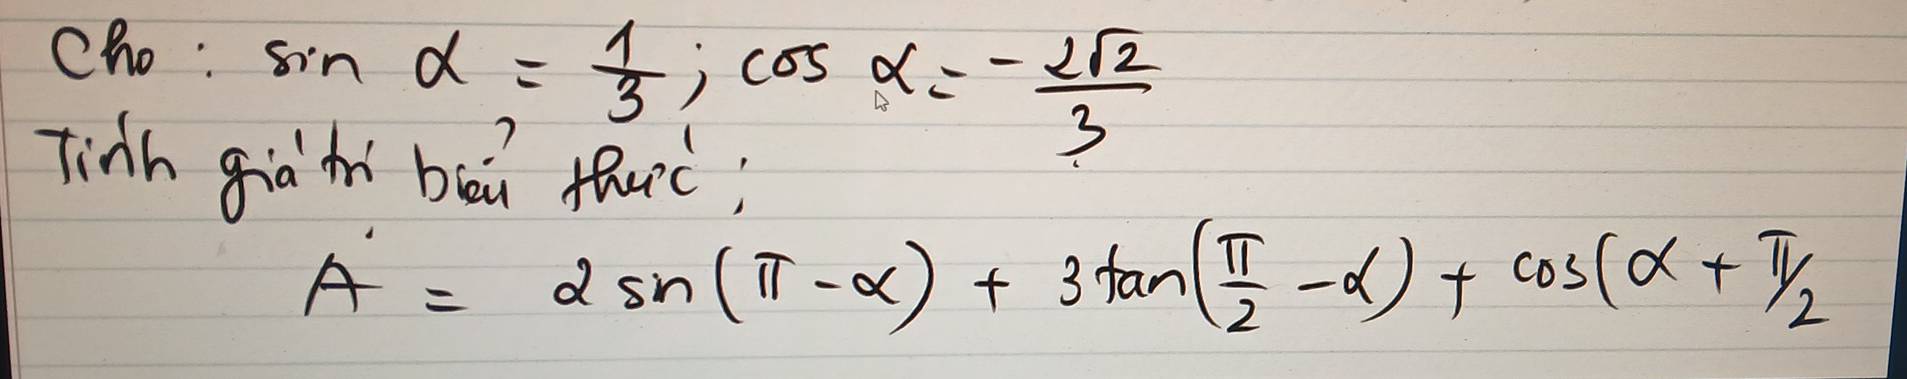 Cho : sin α = 1/3 ; cos α = - 2√2/3
Tính giá trị biểu thức ;
A = 2 sin(π - α) + 3 tan(π/2 - α) + cos(α + π/2